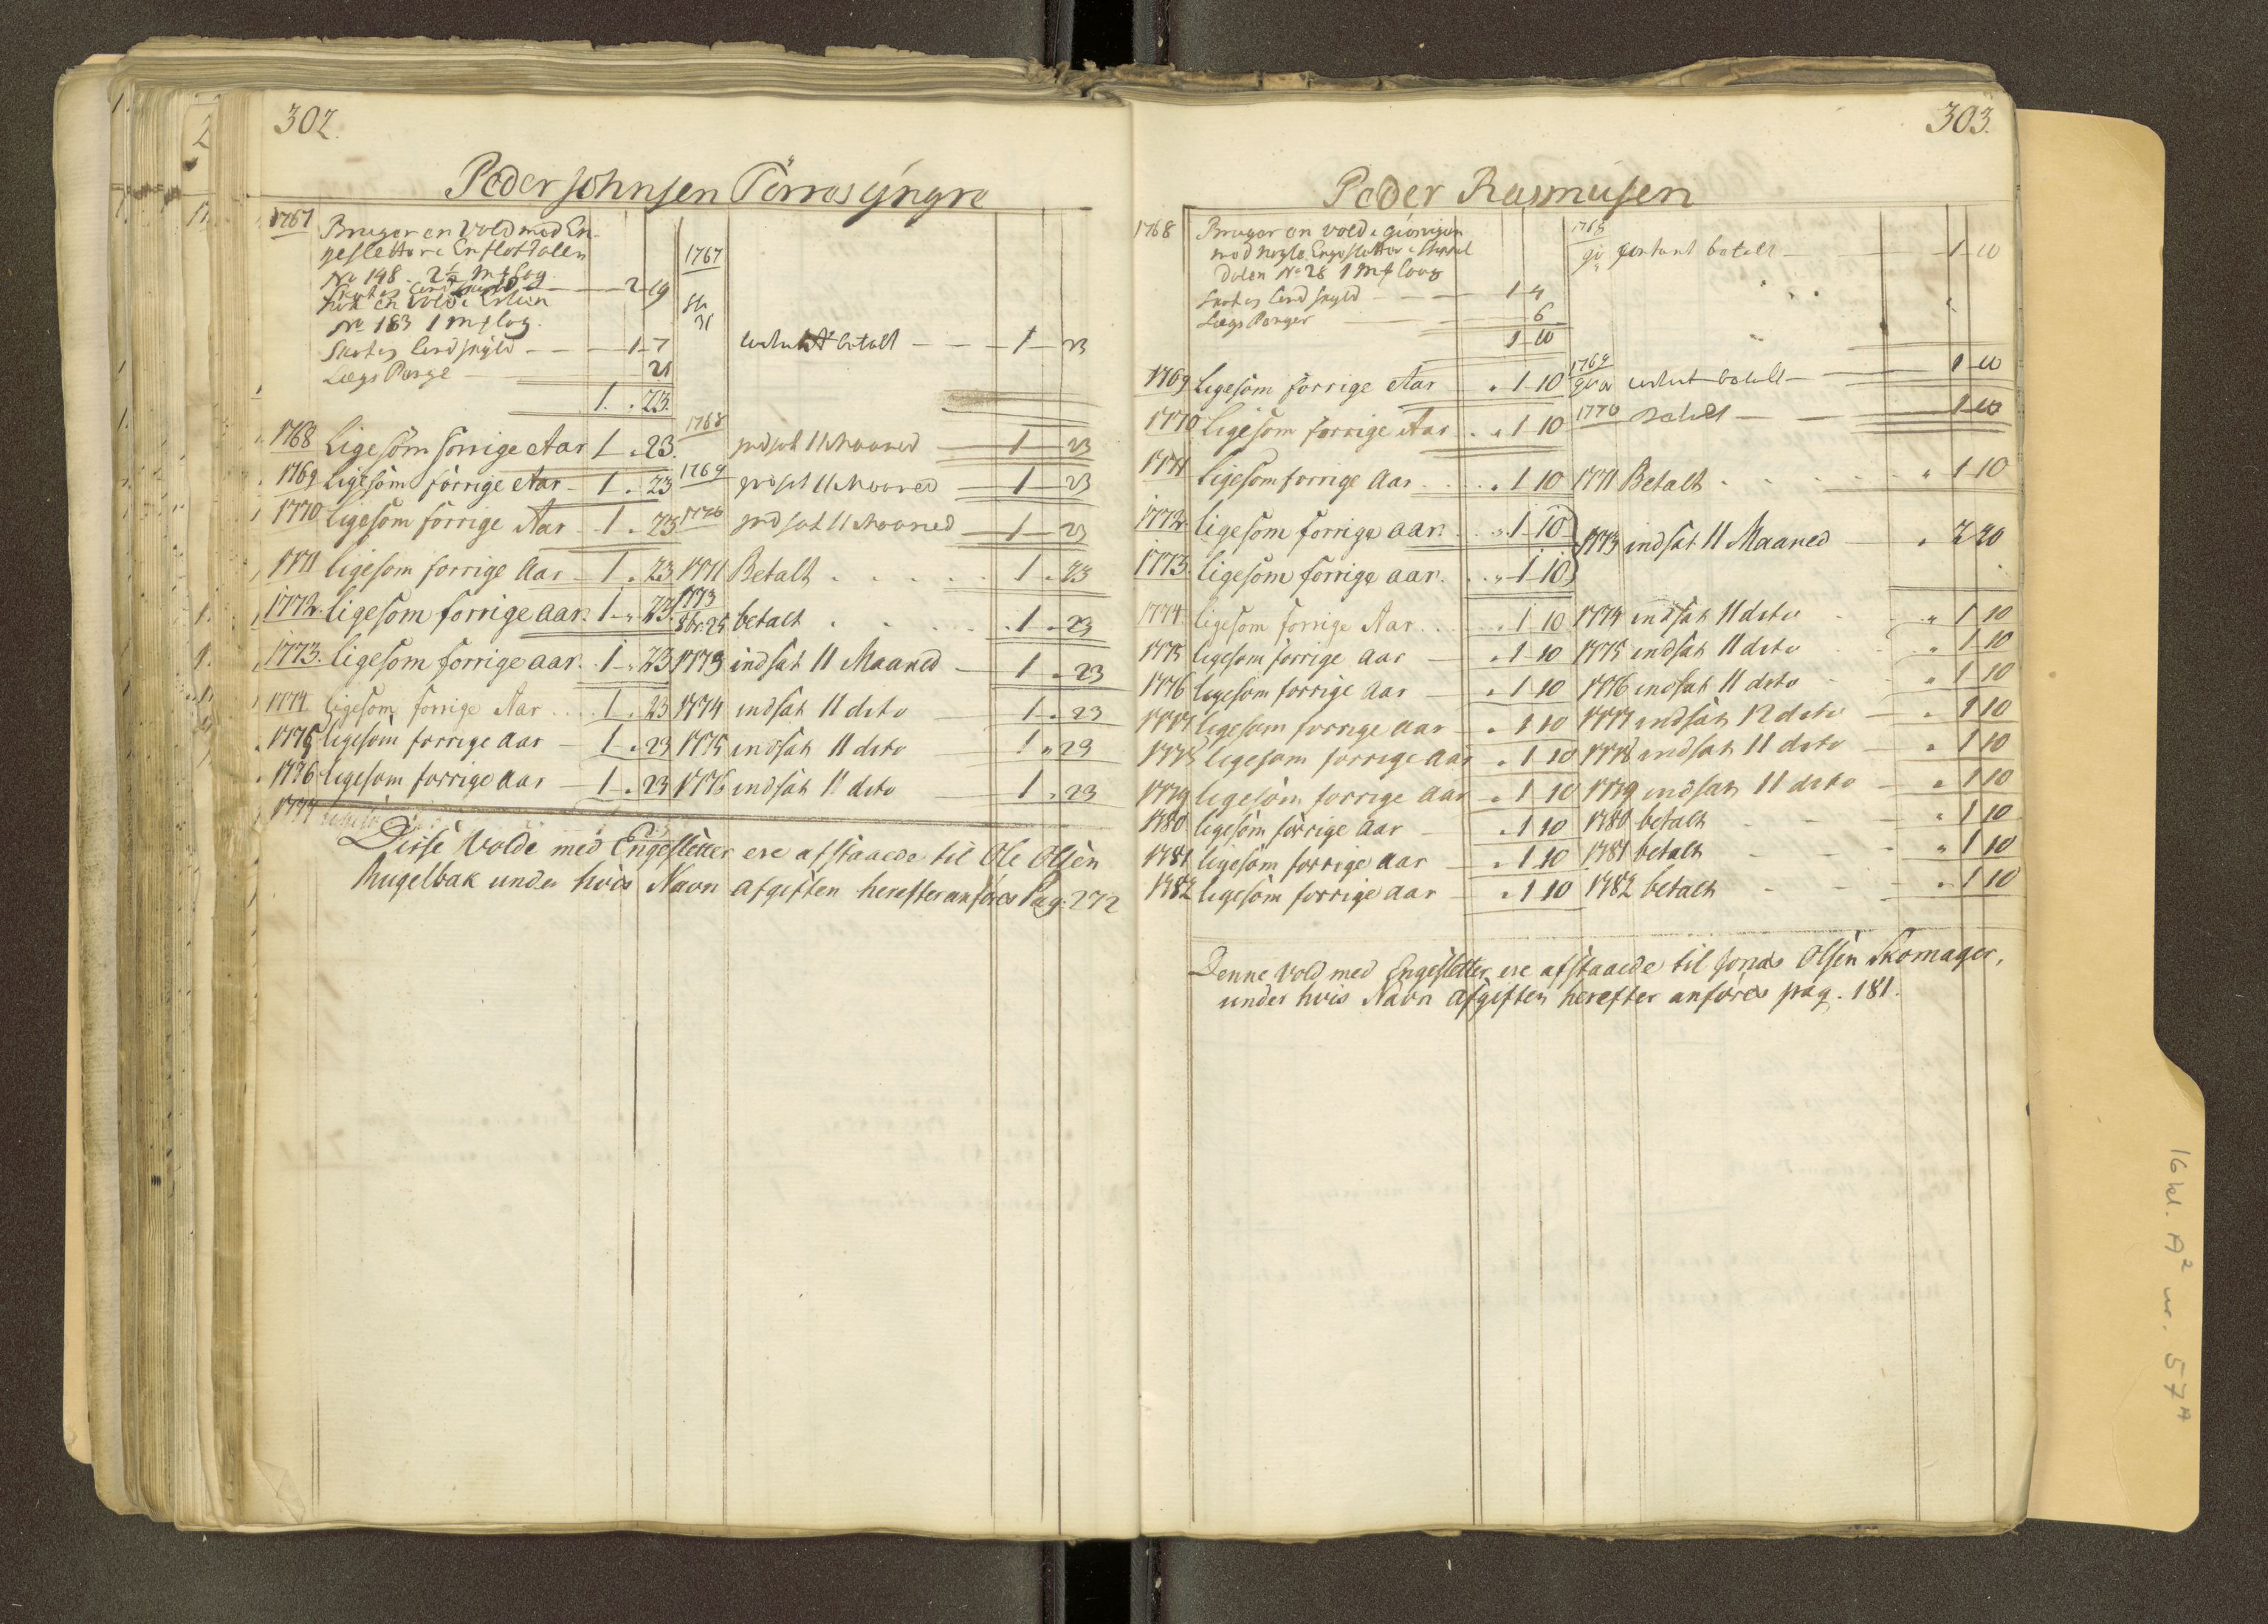 302.
Peder Johnsen Törres yngre
1767 Bruger en Vold med En-
geslettor i
No 198. 2½ mf log
Skat og Lendskyld — 2 19
Nok en Vold i
No 183 1 mf log.
Skat og Lendskyld — — 1 7
Lægs Penge — 21
1 . 23.
1767
31 betalt — — — 1 — 23
1768 Ligesom forrige Aar 1 . 23. 1768 indsat 11 Maaned — 1 — 23
1769 Ligesom forrige Aar — 1 . 23 1769 indsat 11 Maaned — 1 — 23
1770 Ligesom forrige Aar — 1 . 23 1770 indsat 11 Maaned — 1 — 23
1771 ligesom forrige Aar — 1 . 23 1771 Betalt . . . . . 1 . 23
1772. ligesom forrige aar. 1 „ 23. 1773 8br. 25 betalt . . . . 1 „ 23
1773. ligesom forrige aar. 1 „ 23 1773 indsat 11 Maaned — 1 „ 23
1774. ligesom forrige Aar . . . 1 . 23 1774 indsat 11 dito — 1 „ 23
1775 ligesom forrige aar — 1 „ 23 1775 indsat 11 dito — 1 „ 23
1776 ligesom forrige aar — 1 „ 23 1776 indsat 11 dito — 1 „ 23
1777
Disse Volde med Engesletter ere afstaaede til Ole Olsen
Rugelbak under hvis Navn Afgiften herefter anføres Pag: 272
303.
Peder Rasmusen
1768 Bruger en Vold i
med nogle Engesletter i
Dalen No 28 1 mf
Skat og Lend skyld — — 1 4
Lægs Penger — 6
1 10
1768 betalt — 1 10
1769 Ligesom forrige Aar „ 1 10 1769 betalt — 1 10
1770 Ligesom forrige Aar . „ 1 10 1770 Betalt — 1 10
1771 ligesom forrige Aar . . „ 1 10 1771 Betalt . . . . . „ 1 10
1772 ligesom forrige aar. . „ 1 10
1773. ligesom forrige aar. . „ 1 10 1773 indsat 11 Maaned — „ 2 20
1774. ligesom forrige Aar . . . „ 1 10 1774 indsat 11 dito . „ 1 10
1775 ligesom forrige aar — „ 1 10 1775 indsat 11 dito . „ 1 10
1776 ligesom forrige Aar — „ 1 10 1776 indsat 11 dito — „ 1 10
1777 ligesom forrige aar — „ 1 10 1777 indsat 12 dito — „ 1 10
1778 ligesom forrige aar „ 1 10 1778 indsat 11 dito — „ 1 10
1779 ligesom forrige aar — „ 1 10 1779 indsat 11 dito — „ 1 10
1780 ligesom forrige aar — „ 1 10 1780 betalt — — — „ 1 10
1781 ligesom forrige aar — „ 1 10 1781 betalt — — — „ 1 10
1782 ligesom forrige aar — „ 1 10 1782 betalt — — — „ 1 10
Denne Vold med Engesletter ere afstaaede til Jonas Olsen Skomager,
under hvis Navn Afgiften herefter anføres pag. 181.
16 kl. A² nr. 57ᴬ